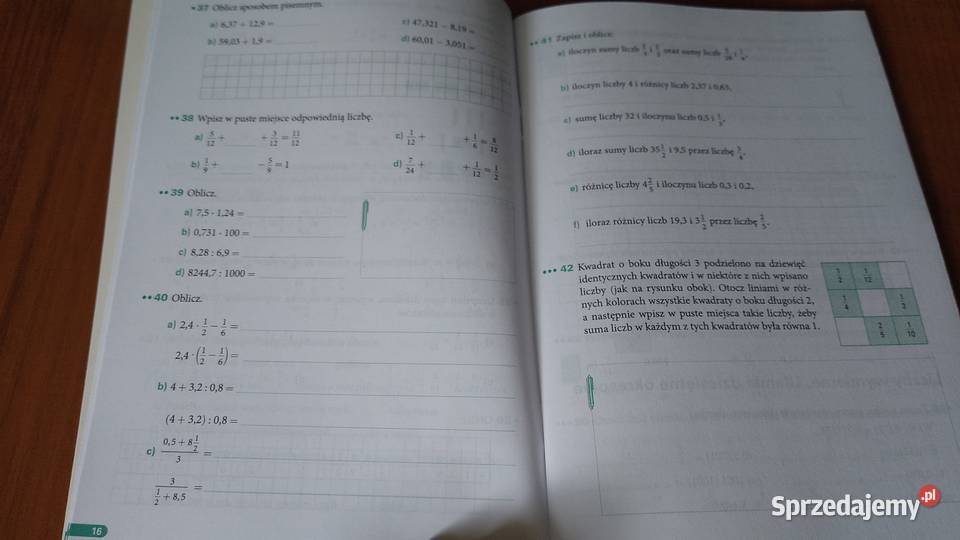 37 Oblicz sposobem pisemnym.
a) 6,37 + 12,9 =
c) 47,321 − 8,19 =
b) 59,03 + 1,9 =
d) 60,01 − 3,051 =
•• 38 Wpisz w puste miejsce odpowiednią liczbę.
a) 5/12 + + 3/12 = 11/12
c) 1/12 + + 1/6 = 8/12
b) 1/9 + − 5/9 = 1
d) 7/24 + + 1/12 = 1/2
•• 39 Oblicz.
a) 7,5 · 1,24 =
b) 0,731 · 100 =
c) 8,28 : 6,9 =
d) 8244,7 : 1000 =
•• 40 Oblicz.
a) 2,4 · 1/2 − 1/6 =
2,4 · (1/2 − 1/6) =
b) 4 + 3,2 : 0,8 =
(4 + 3,2) : 0,8 =
c) (0,5 + 8 1/2)/3 =
3/(1/2 + 8,5) =
16
•• 41 Zapisz i oblicz.
a) iloczyn sumy liczb i oraz sumy liczb i
b) iloczyn liczby 4 i różnicy liczb 2,37 i 0,63,
c) sumę liczby 32 i iloczynu liczb 0,5 i
d) iloraz sumy liczb 35 1/2 i 9,5 przez liczbę 3/4,
e) różnicę liczby 4 2/5 i iloczynu liczb 0,3 i 0,2,
f) iloraz różnicy liczb 19,3 i 3 1/2 przez liczbę 2/5.
••• 42 Kwadrat o boku długości 3 podzielono na dziewięć
identycznych kwadratów i w niektóre z nich wpisano
liczby (jak na rysunku obok). Otocz liniami w róż-
nych kolorach wszystkie kwadraty o boku długości 2,
a następnie wpisz w puste miejsca takie liczby, żeby
suma liczb w każdym z tych kwadratów była równa 1.
1/2 1/12
1/4 1/3
2/5 1/10
Sprzedajemy.pl